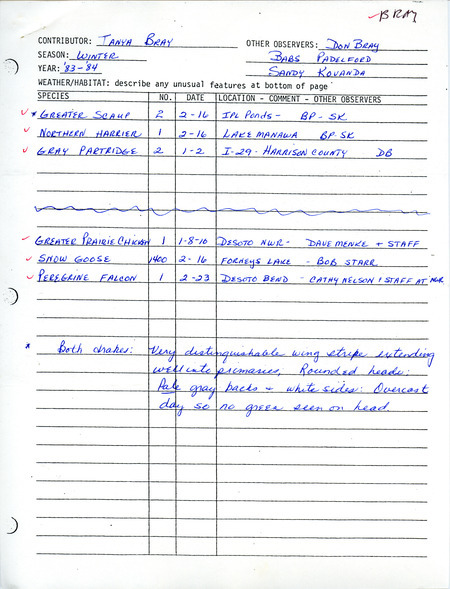 BRAY
CONTRIBUTOR: TANYA BRAY OTHER OBSERVERS: DON BRAY
SEASON: WINTER BABS PADELFORD
YEAR: '83-'84 SANDY KOVANDA
WEATHER/HABITAT: describe any unusual features at bottom of page
SPECIES NO. DATE LOCATION - COMMENT - OTHER OBSERVERS
* GREATER SCAUP 2 2-16 IPL PONDS - BP-SK
NORTHERN HARRIER 1 2-16 LAKE MANAWA BP-SK
GRAY PARTRIDGE 2 1-2 I-29 - HARRISON COUNTY DB
GREATER PRAIRIE CHICKEN 1 1-8-10 DESOTO NWR - DAVE MENKE + STAFF
SNOW GOOSE 1400 2-16 FORNEYS LAKE - BOB STARR
PEREGRINE FALCON 1 2-23 DESOTO BEND - CATHY NELSON + STAFF AT NWR
* Both drakes: Very distinguishable wing stripe extending
well into primaries, Rounded heads:
Pale gray backs + white sides: Overcast
day so no green seen on head.